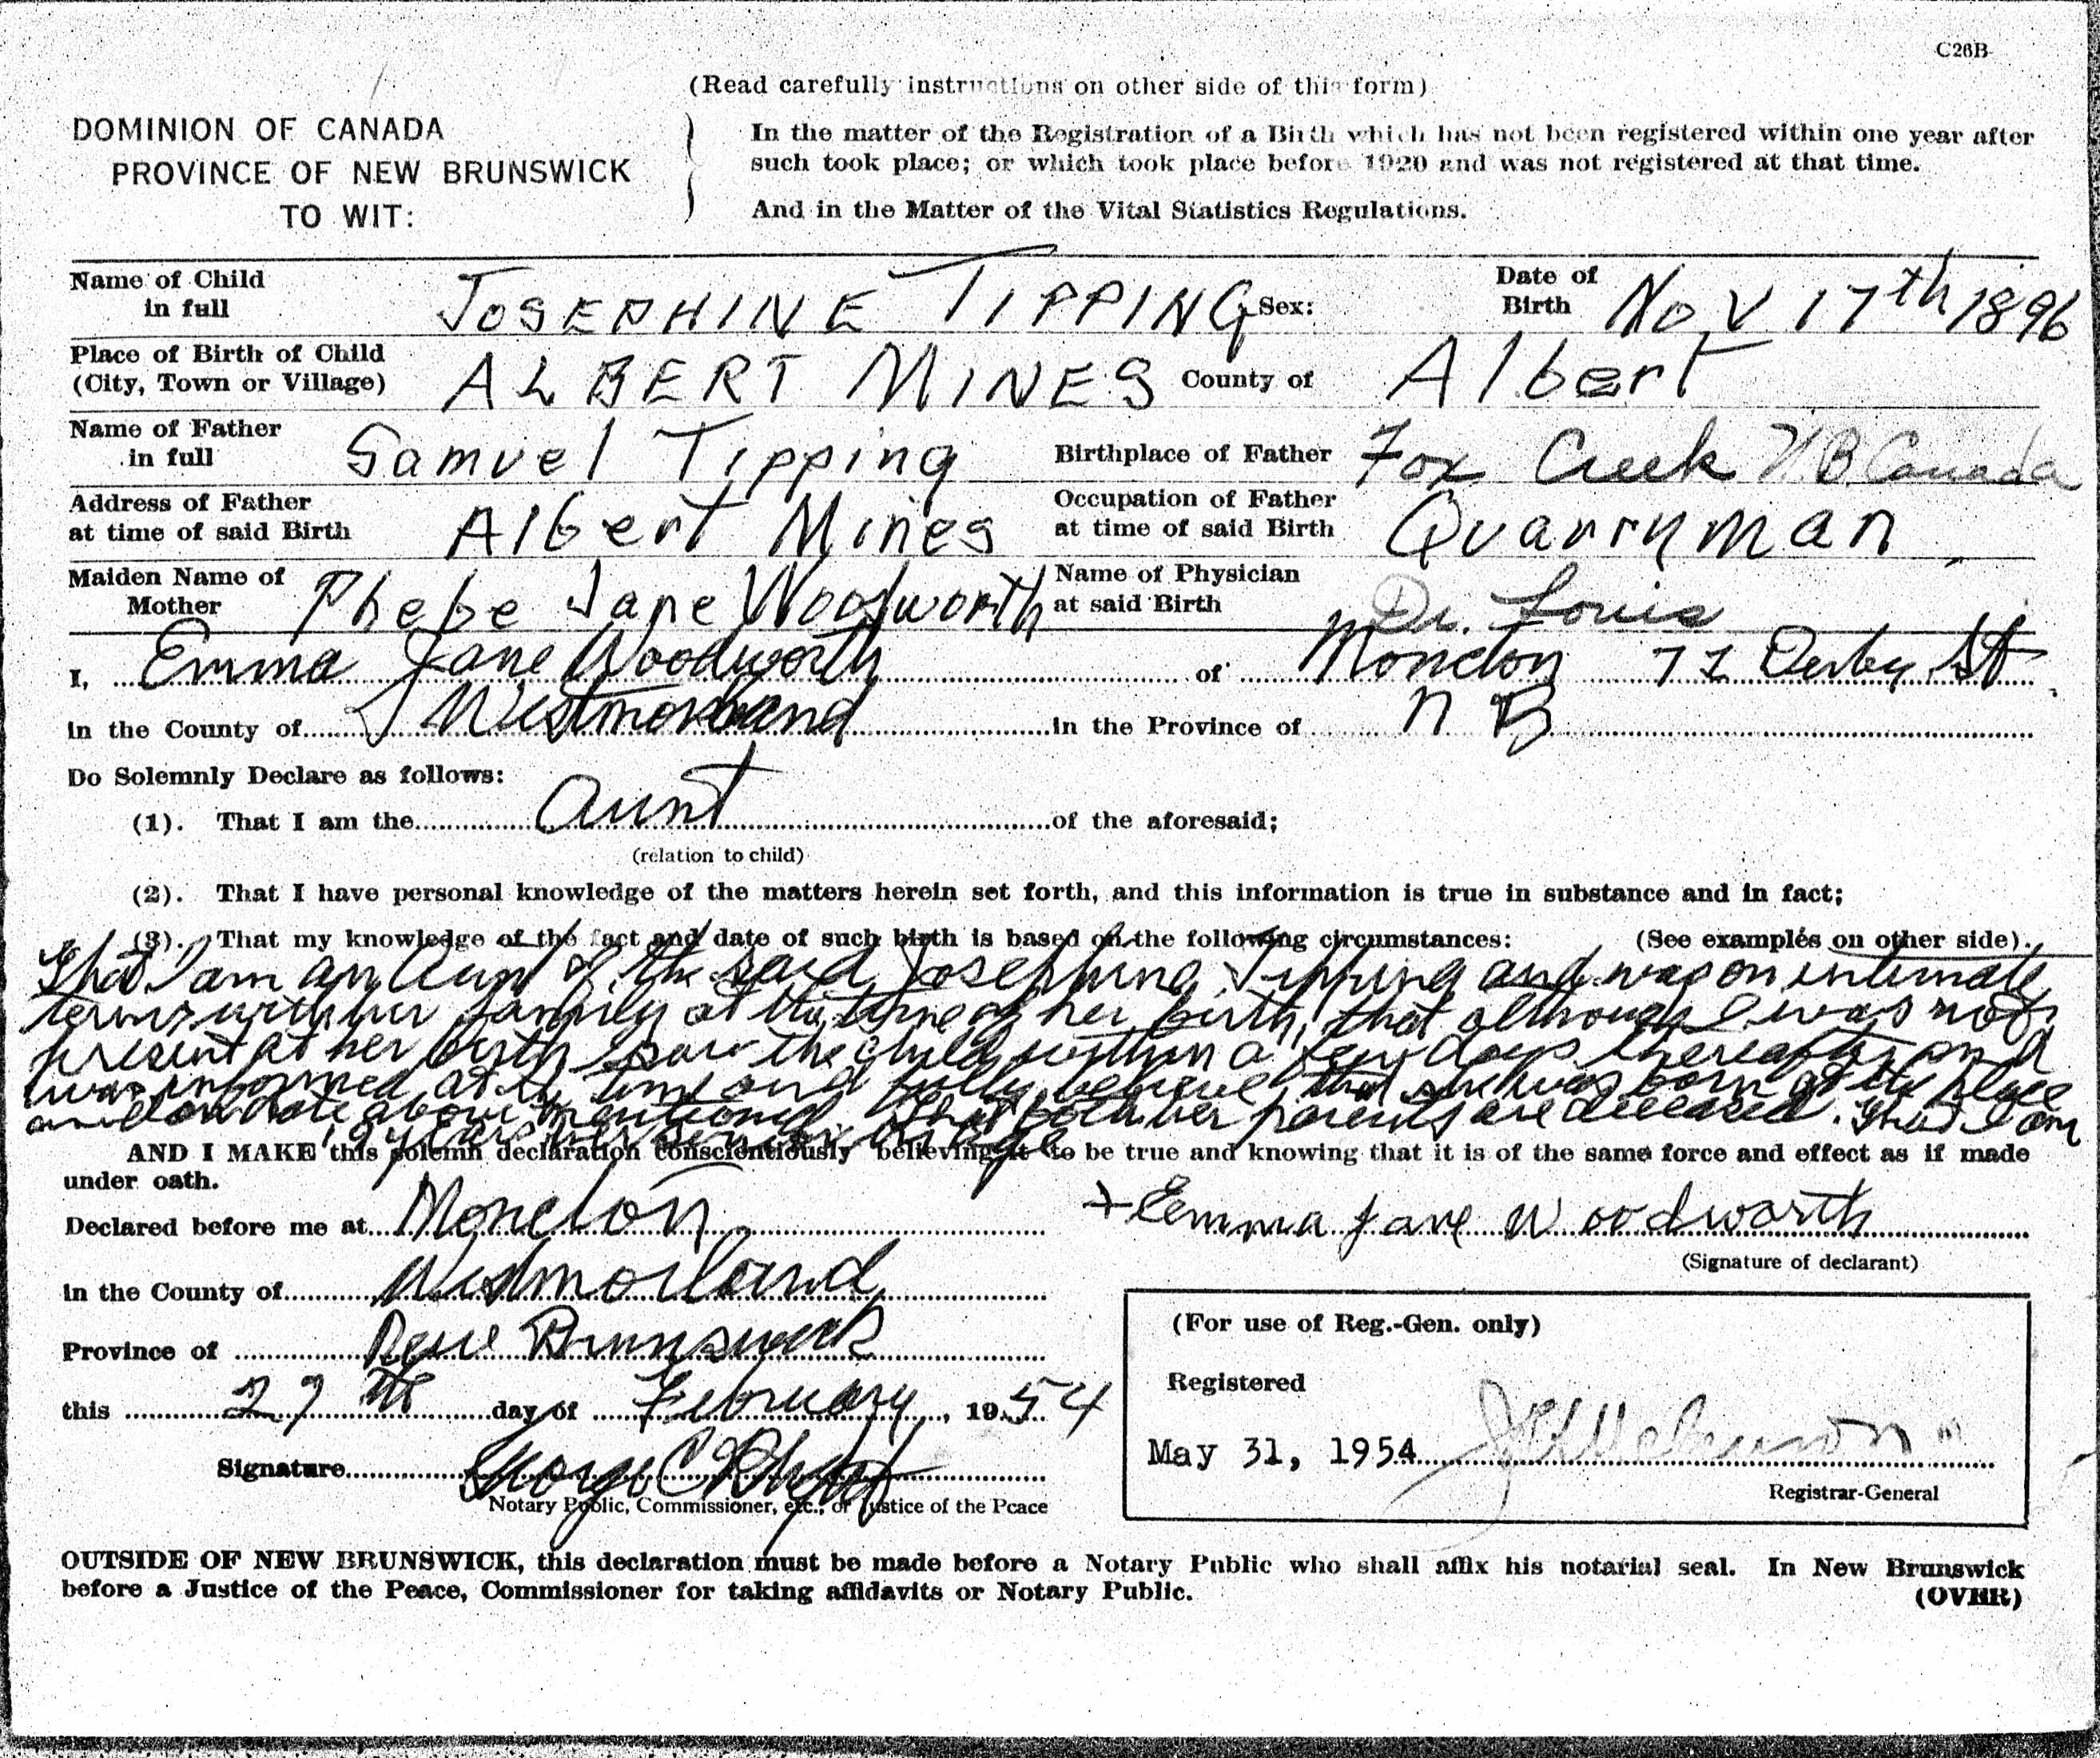 C26B
(Read carefully instructions on other side of this form)
DOMINION OF CANADA
PROVINCE OF NEW BRUNSWICK
TO WIT:
In the matter of the Registration of a Birth which has not been registered within one year after
such took place; or which took place before 1920 and was not registered at that time.
And in the Matter of the Vital Statistics Regulations.
Name of Child in full JOSEPHINE TIPPING Sex: Date of Birth Nov 17th 1896
Place of Birth of Child (City, Town or Village) ALBERT MINES County of Albert
Name of Father in full Samuel Tipping Birthplace of Father Fox Creek N.B Canada
Address of Father at time of said Birth Albert Mines Occupation of Father at time of said Birth Quarryman
Maiden Name of Mother Phebe Jane Woodworth Name of Physician at said Birth Dr. Louis
I, Emma Jane Woodworth of Moncton 71 Derby St
in the County of Westmorland in the Province of N B
Do Solemnly Declare as follows:
(1). That I am the Aunt of the aforesaid;
(relation to child)
(2). That I have personal knowledge of the matters herein set forth, and this information is true in substance and in fact;
(3). That my knowledge of the fact and date of such birth is based on the following circumstances: (See examples on other side).
That I am an Aunt of the said Josephine Tipping and was on intimate
terms with her family at the time of her birth, that although I was not
present at her birth I saw the child within a few days thereafter and
was informed at the time and fully believe that she was born at the place
and on date above mentioned. That both her parents are deceased. That I am
years her senior in age
AND I MAKE this solemn declaration conscientiously believing it to be true and knowing that it is of the same force and effect as if made
under oath.
Declared before me at Moncton
+ Emma Jane Woodworth
(Signature of declarant)
in the County of Westmorland
Province of New Brunswick
this 27th day of February, 1954
Signature George C
Notary Public, Commissioner, etc., or Justice of the Peace
(For use of Reg.-Gen. only)
Registered
May 31, 1954
Registrar-General
OUTSIDE OF NEW BRUNSWICK, this declaration must be made before a Notary Public who shall affix his notarial seal. In New Brunswick
before a Justice of the Peace, Commissioner for taking affidavits or Notary Public. (OVER)